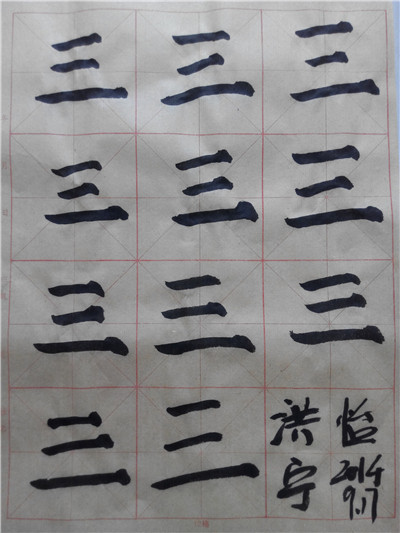 三三三
三三三
三三三
三三
洪宁
2014
9.17